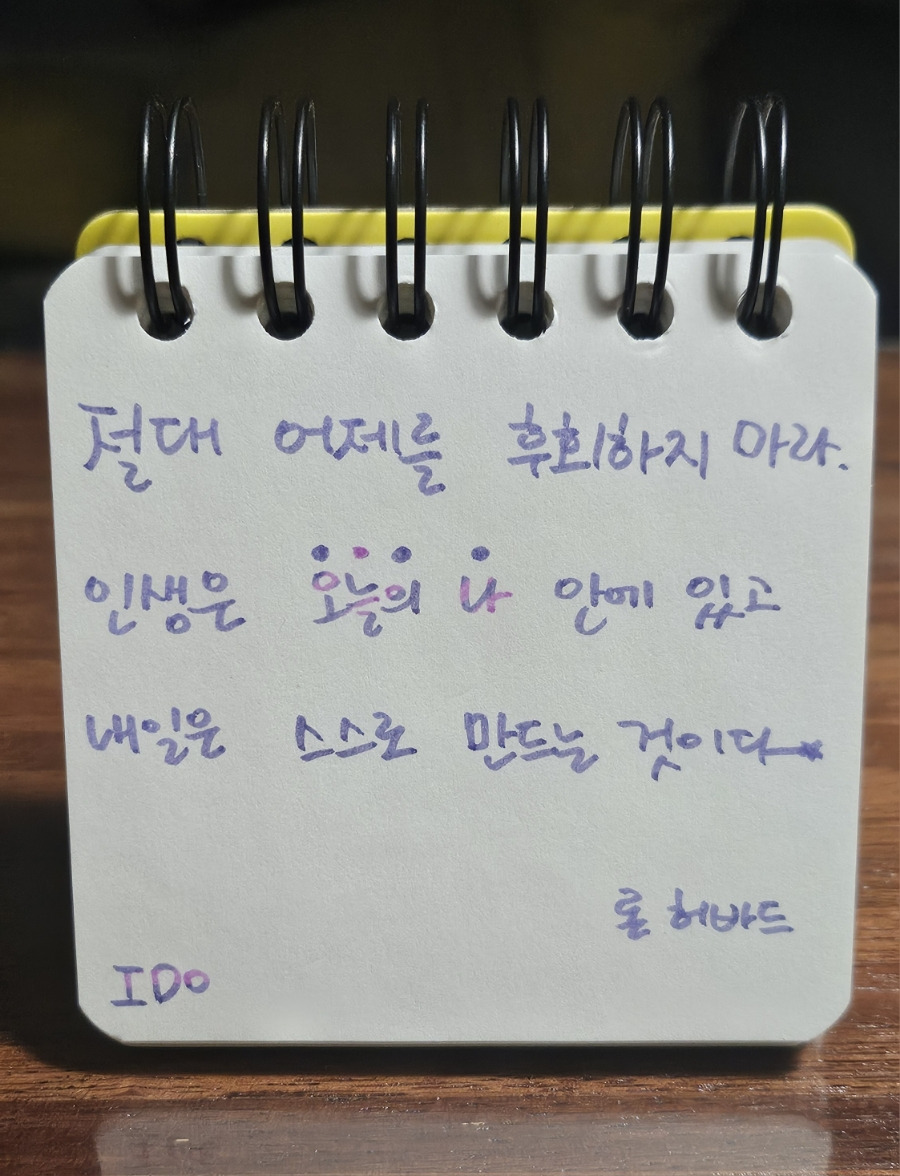 절대 어제를 후회하지 마라.
인생은 오늘의 나 안에 있고
내일은 스스로 만드는 것이다
론 허바드
IDo